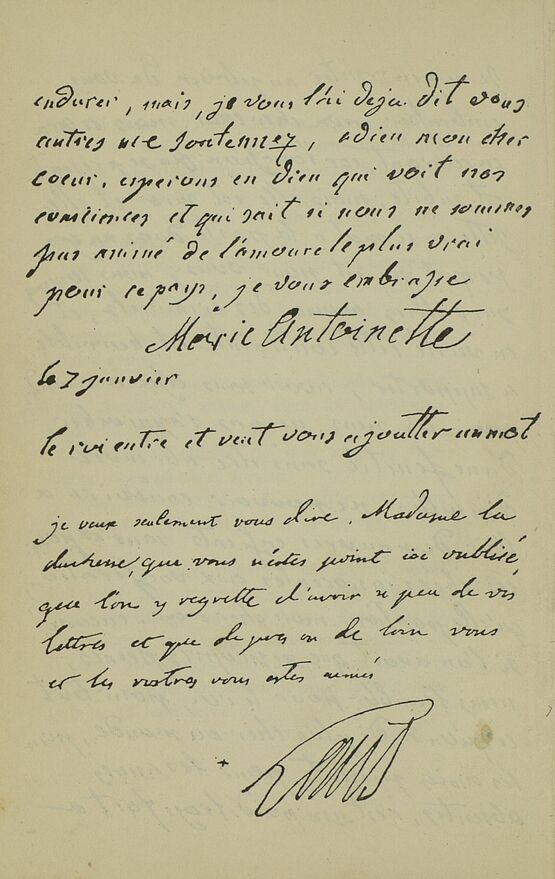 endurer, mais, je vous l'ai deja dit vous
autres me soutennez, adieu mon cher
coeur, esperons en Dieu qui voit nos
consciences et qui sait si nous ne sommes
pas animé de l'amour le plus vrai
pour ce pays, je vous embrasse
Marie Antoinette
le 7 janvier
le roi entre et veut vous ajoutter un mot
je veux seulement vous dire, Madame la
duchesse, que vous n'estes point ici oubliée,
que l'on y regrette d'avoir si peu de vos
lettres et que de pres ou de loin vous
et les vostres vous estes aimés
Louis